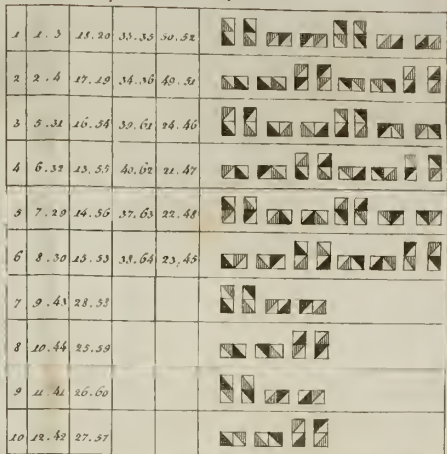 1 1.3 18.20 33.35 50.52
2 2.4 17.19 34.36 49.51
3 5.31 16.54 39.61 24.46
4 6.32 13.55 40.62 21.47
5 7.29 14.56 37.63 22.48
6 8.30 15.53 38.64 23.45
7 9.43 28.58
8 10.44 25.59
9 11.41 26.60
10 12.42 27.57